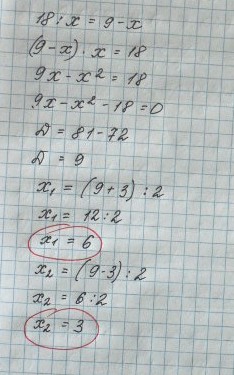 18 : x = 9 - x
(9 - x) · x = 18
9x - x² = 18
9x - x² - 18 = 0
D = 81 - 72
D = 9
x₁ = (9 + 3) : 2
x₁ = 12 : 2
x₁ = 6
x₂ = (9 - 3) : 2
x₂ = 6 : 2
x₂ = 3